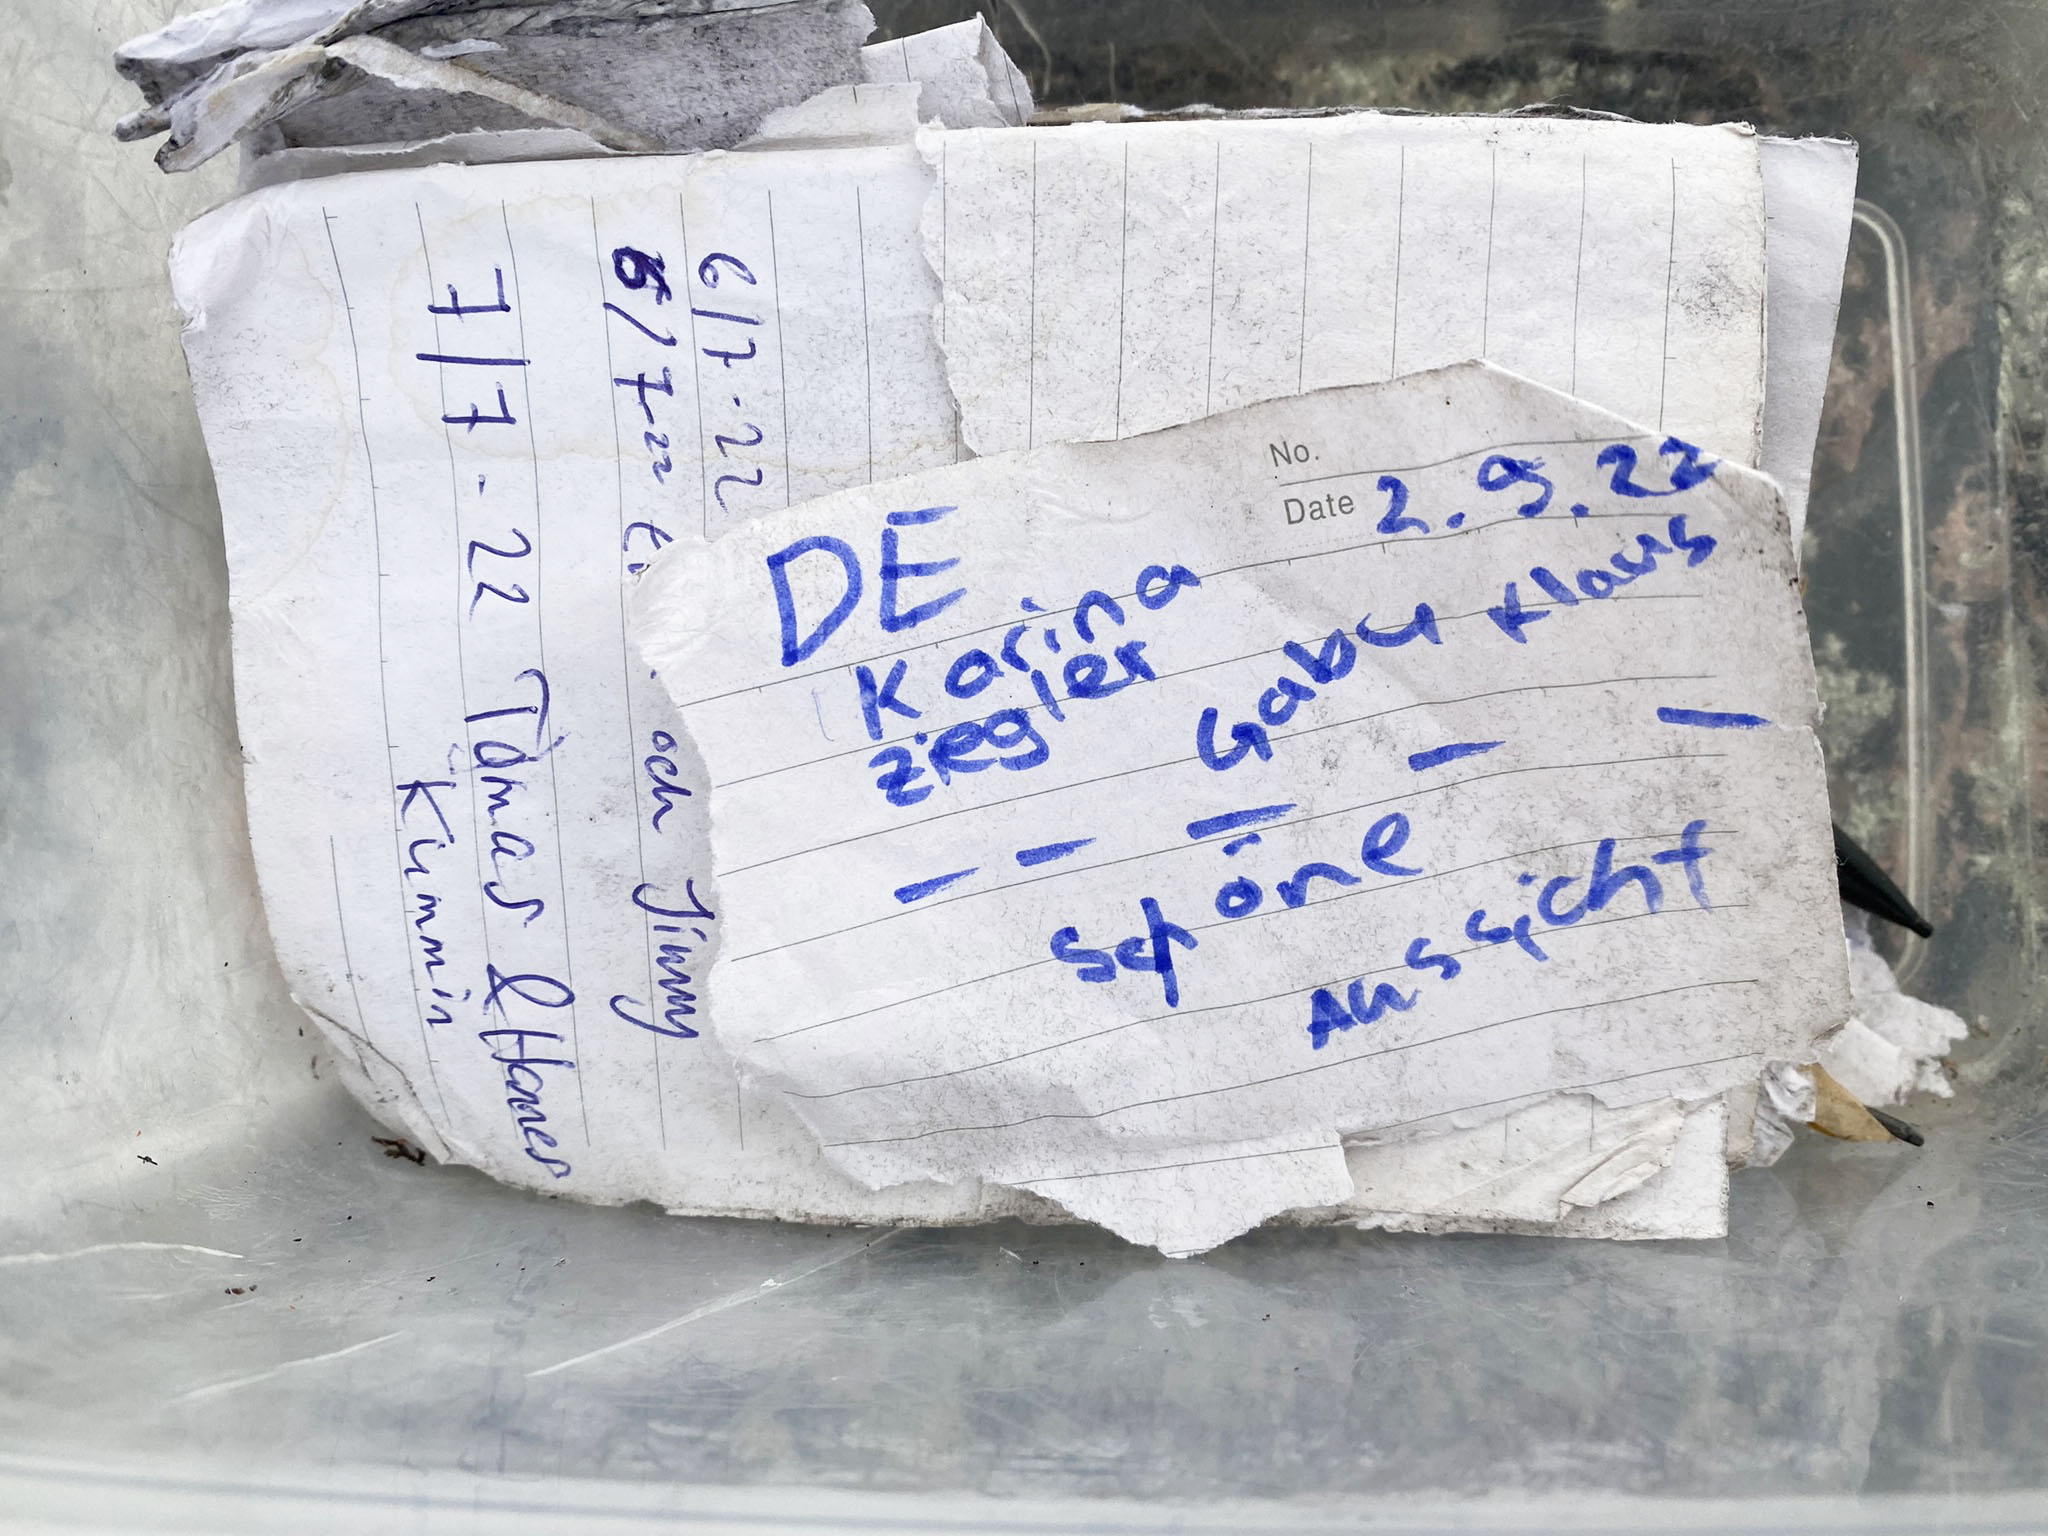 No.
Date 2.9.22
DE
Karina
ziegler
Gabu Klaus
- - - - -
schöne
Aussicht
6/7-22
5/7-22
och Jimmy
7/7-22 Tomas & Hannes
Kummin